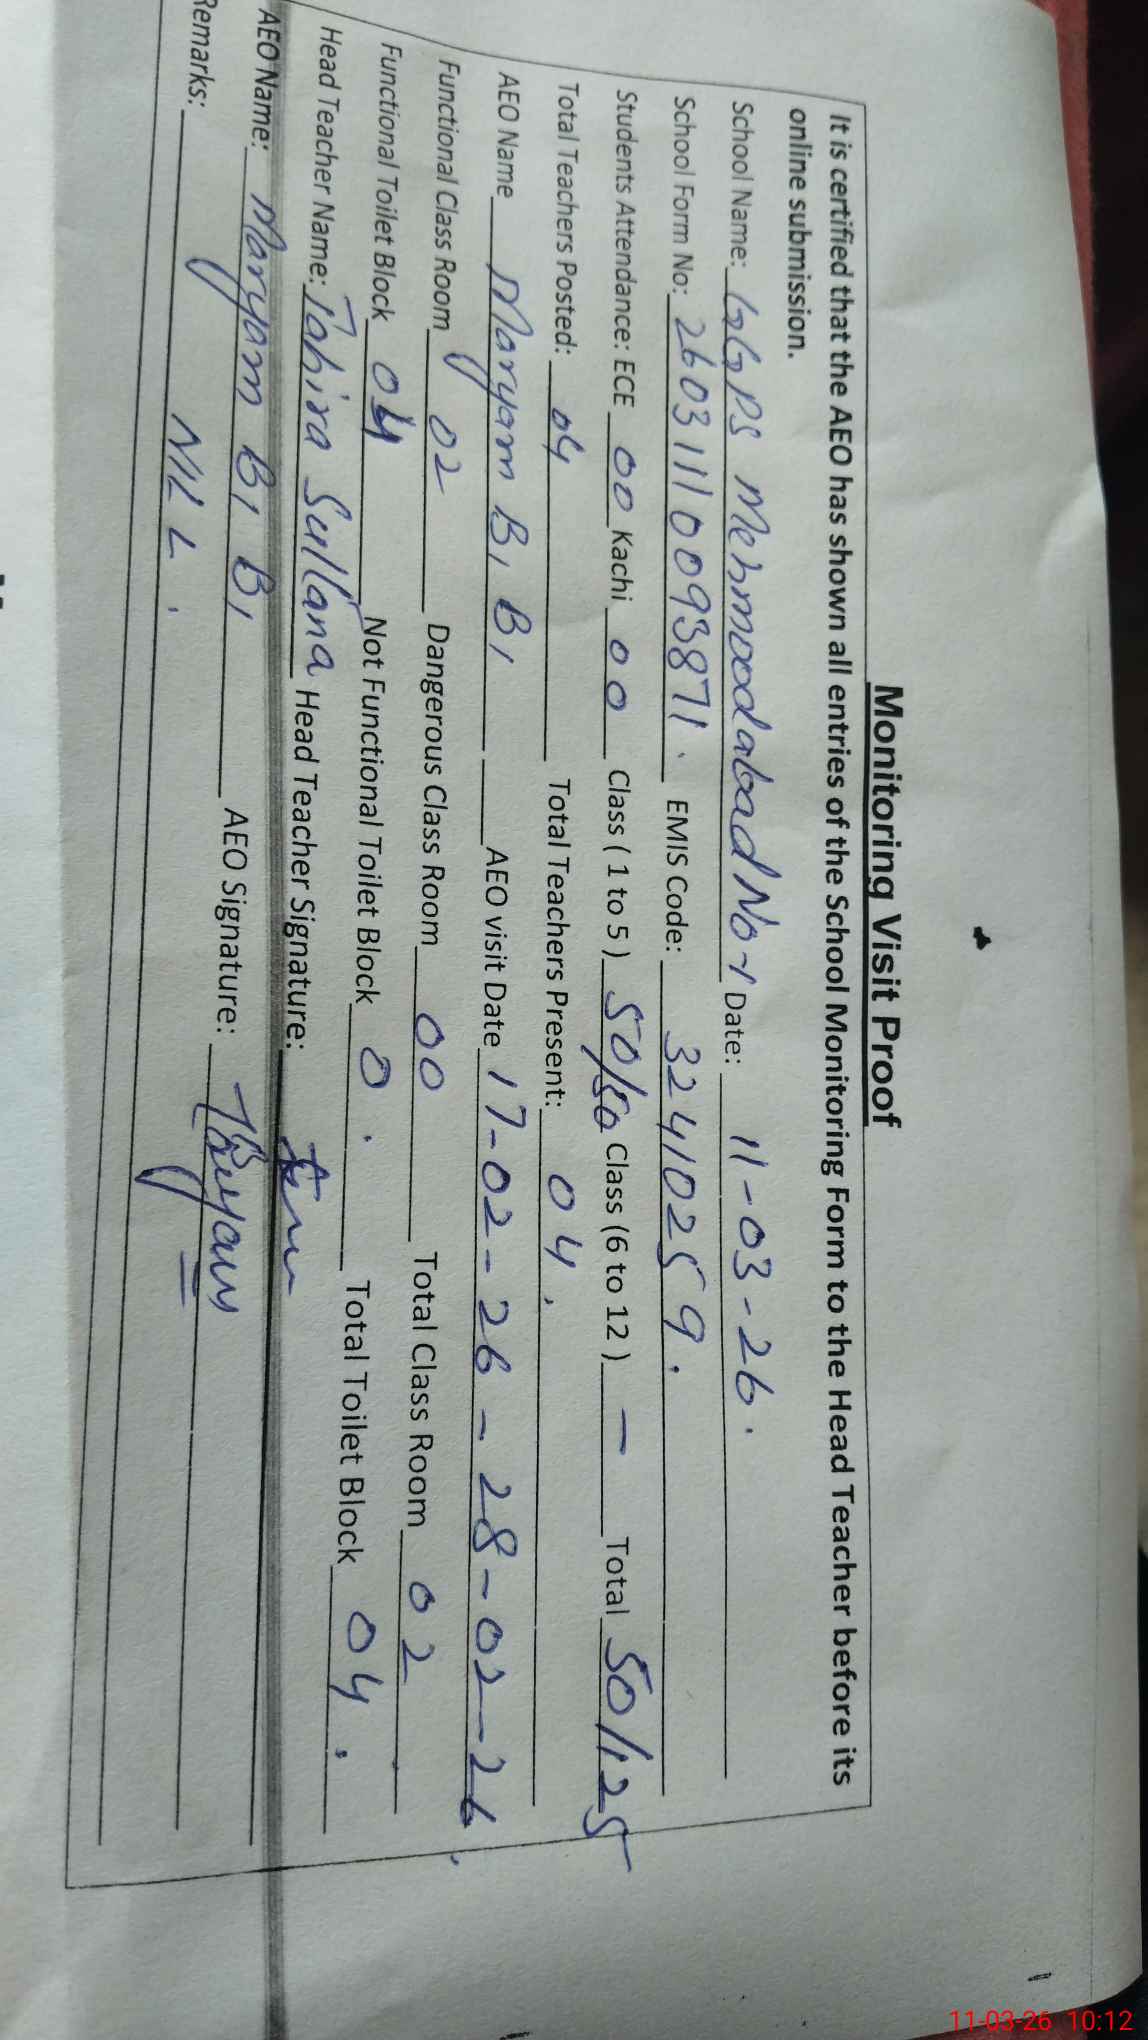 Monitoring Visit Proof
It is certified that the AEO has shown all entries of the School Monitoring Form to the Head Teacher before its
online submission.
School Name: GGPS Mehmoodabad No 1 Date: 11-03-26.
School Form No: 26031110093871. EMIS Code: 32410259.
Students Attendance: ECE 00 Kachi 00 Class ( 1 to 5 ) 50/ Class (6 to 12 ) — Total 50/125
Total Teachers Posted: 04 Total Teachers Present: 04.
AEO Name Maryam Bi Bi AEO visit Date 17-02-26 - 28-02-26.
Functional Class Room 02 Dangerous Class Room 00 Total Class Room 02
Functional Toilet Block 04 Not Functional Toilet Block 0. Total Toilet Block 04.
Head Teacher Name: Tahira Sultana Head Teacher Signature:
AEO Name: Maryam Bi Bi AEO Signature: Maryam
Remarks: NIL.
11-03-26 10:12